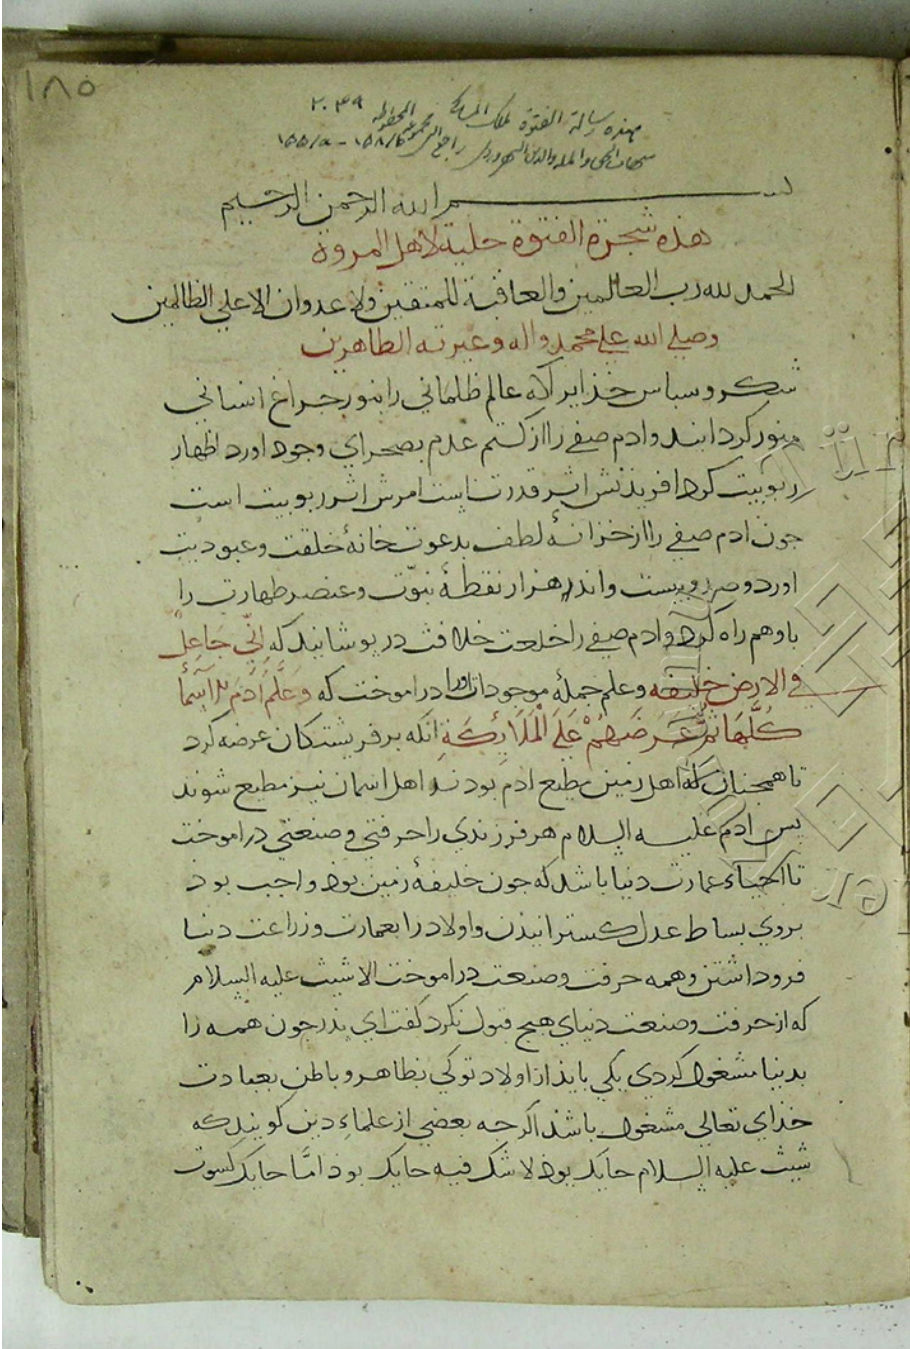 ١٨٥
هذه رسالة الفتوة
٢٠٤٩
شهاب الحق والملة والدين السهروردي راجع الى مجموعة المخطوطة
١٥٥/a - ١٥٨/b
بسم الله الرحمن الرحيم
هذه شجرة الفتوة حلية لاهل المروة
الحمد لله رب العالمين والعاقبة للمتقين ولا عدوان الا علي الظالمين
وصلي الله علي محمد واله وعترته الطاهرين
شكر وسباس خذايرا كه عالم ظلماني را بنور جراغ انساني
منور كردانيد وادم صفي را از كتم عدم بصحراي وجود اورد اظهار
ربوبيت كرد افرينش اثر قدرت است امرش اثر ربوبيت است
جون ادم صفي را از خزانۀ لطف بدعوت خانۀ خلقت وعبوديت
اورد وصد وبيست واند هزار نقطۀ نبوّت وعنصر طهارت را
باو همراه كرد وادم صفي را خلعت خلافت در پوشانيد كه اِنّي جَاعِلٌ
في الارض خليفه وعلم جملۀ موجودات اورا دراموخت كه وَعَلَّمَ اٰدَمَ الْاَسْمَٓا
كُلَّهَا ثُمَّ عَرَضَهُمْ عَلَي الْمَلَاۤئِكَةِ انكه بر فريشتكان عرضه كرد
تا همجنان كه اهل زمين مطيع ادم بودند اهل اسمان نيز مطيع شوند
پس ادم عليه السلام هر فرزندي را حرفتي وصنعتي دراموخت
تا احياء عمارت دنيا باشد كه جون خليفۀ زمين بود واجب بود
بروي بساط عدل كسترانيذن واولاد را بعمارت وزراعت دنيا
فرود اشتن وهمه حرفت وصنعت دراموخت الا شيث عليه السلام
كه از حرفت وصنعت دنياي هيج قبول نكرد كفت اي پدر جون همه را
بدنيا مشغول كردي يكي بايذ از اولاد تو كي بظاهر وباطن بعبادت
خذاي تعالي مشغول باشذ اكرجه بعضي از علماء دين كويند كه
شيث عليه السلام حايك بوذ لا شك فيه حايك بوذ امّا حايك كسوت